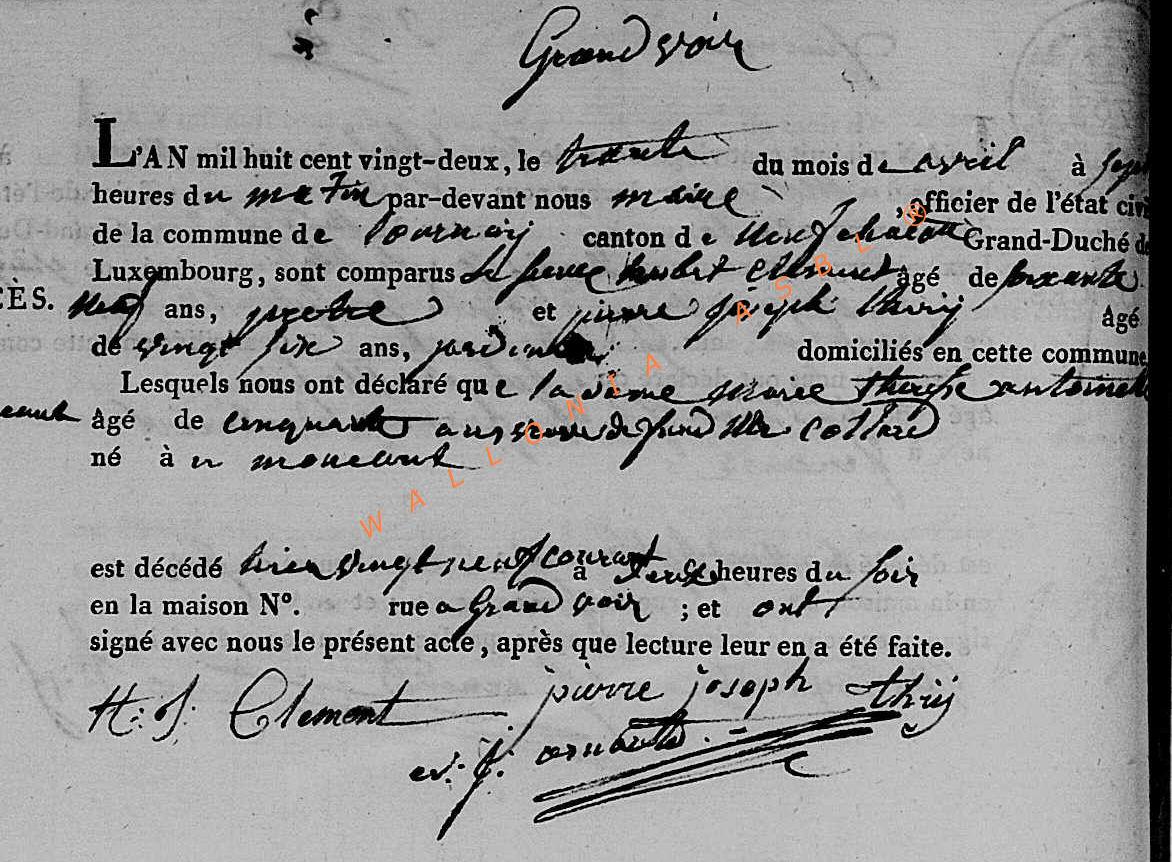 Grand voir
L'AN mil huit cent vingt-deux, le trente du mois de avril à sept
heures du matin par-devant nous maire , officier de l'état civi
de la commune de tournay canton de neufchateau Grand-Duché de
Luxembourg, sont comparus Le hubert Clement âgé de soixante
CÈS. neuf ans, pretre et pierre joseph thiry âgé
de vingt six ans, jardinier domiciliés en cette commune
Lesquels nous ont déclaré que la dame marie therese antoinette
âgé de cinquante ans veuve de feu Collard
né à a monceaux
est décédé hier vingt neuf courant à heures du soir
en la maison N°. rue a Grand voir ; et ont
signé avec nous le présent acte, après que lecture leur en a été faite.
H: J. Clement pierre joseph thirÿ
J: arnould
WALLONIA ASBL ®